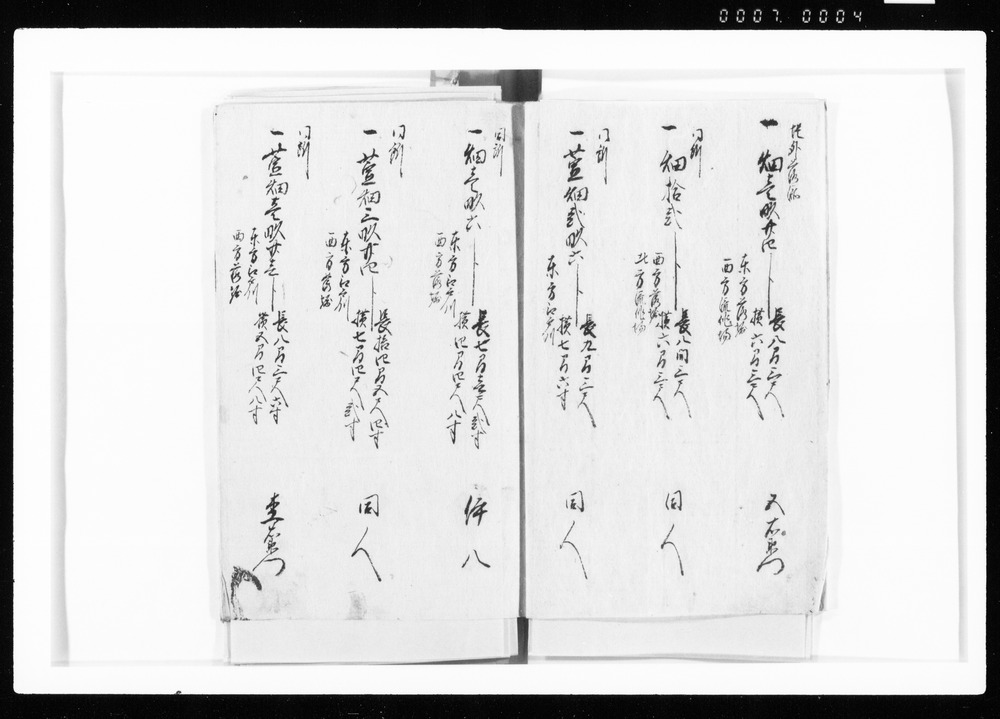 0007.0004
堤外落堀
一畑壱畝廿四歩
長八間三尺
横六間三尺
東方落堀
西方流作場
又右衛門
同所
一畑拾弐歩
長八間三尺
横六間三尺
西方落堀
北方流作場
同人
同所
一萱畑弐畝六歩
長九間三尺
横七間六寸
東方江戸川
同人
同所
一畑壱畝六歩
長七間壱尺弐寸
横四間四尺八寸
東方江戸川
西方落堀
伴八
同所
一萱畑三畝廿四歩
長拾四間五尺四寸
横七間四尺弐寸
東方江戸川
西方落堀
同人
同所
一萱畑壱畝廿壱歩
長八間三尺六寸
横五間四尺八寸
東方江戸川
西方落堀